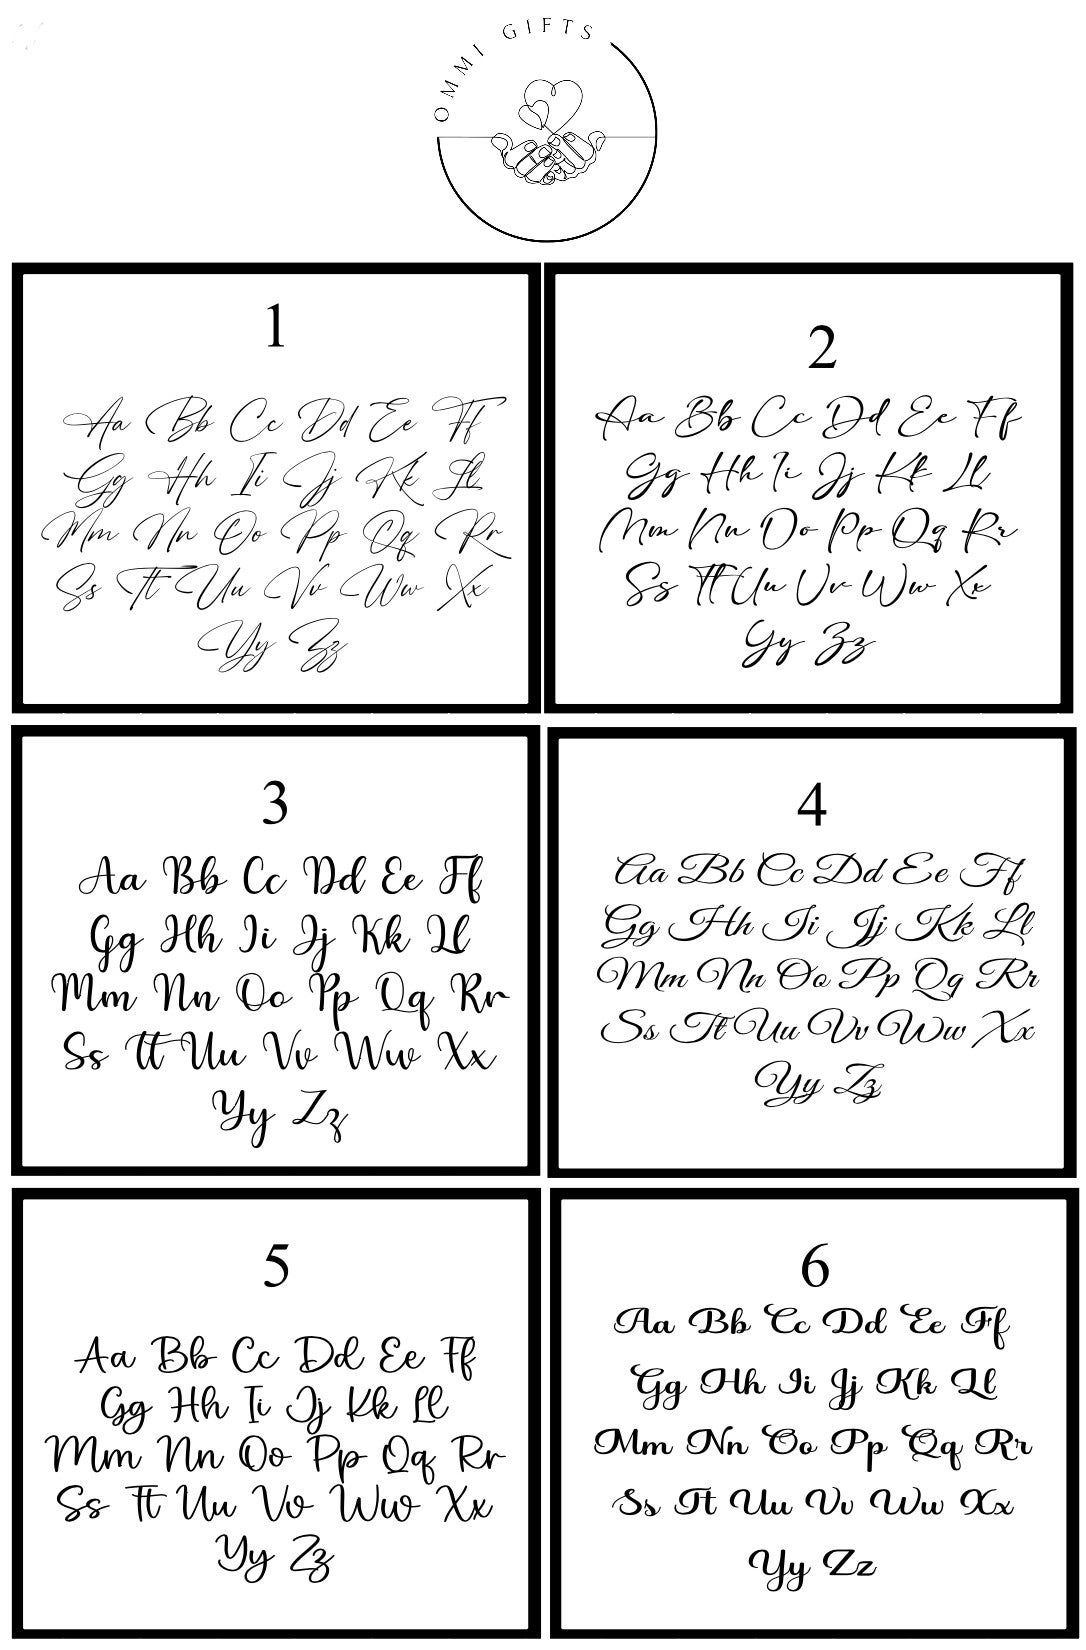 OMMI GIFTS
1
Aa Bb Cc Dd Ee Ff
Gg Hh Ii Jj Kk Ll
Mm Nn Oo Pp Qq Rr
Ss Tt Uu Vv Ww Xx
Yy Zz
2
Aa Bb Cc Dd Ee Ff
Gg Hh Ii Jj Kk Ll
Mm Nn Oo Pp Qq Rr
Ss Tt Uu Vv Ww Xx
Yy Zz
3
Aa Bb Cc Dd Ee Ff
Gg Hh Ii Jj Kk Ll
Mm Nn Oo Pp Qq Rr
Ss Tt Uu Vv Ww Xx
Yy Zz
4
Aa Bb Cc Dd Ee Ff
Gg Hh Ii Jj Kk Ll
Mm Nn Oo Pp Qq Rr
Ss Tt Uu Vv Ww Xx
Yy Zz
5
Aa Bb Cc Dd Ee Ff
Gg Hh Ii Jj Kk Ll
Mm Nn Oo Pp Qq Rr
Ss Tt Uu Vv Ww Xx
Yy Zz
6
Aa Bb Cc Dd Ee Ff
Gg Hh Ii Jj Kk Ll
Mm Nn Oo Pp Qq Rr
Ss Tt Uu Vv Ww Xx
Yy Zz